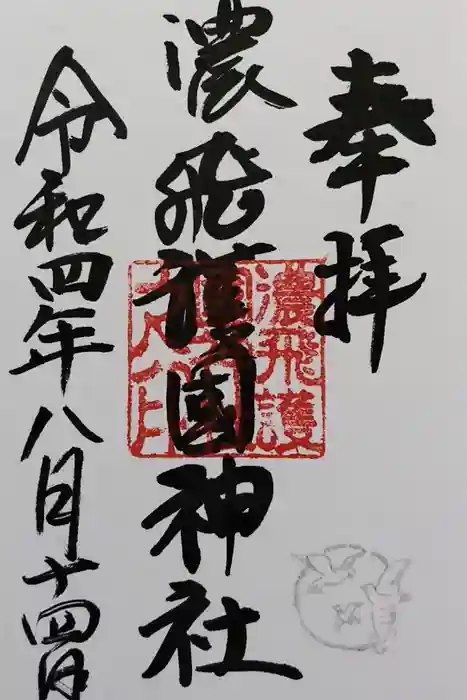 奉拝
濃飛護國神社
令和四年八月十四日
濃飛護